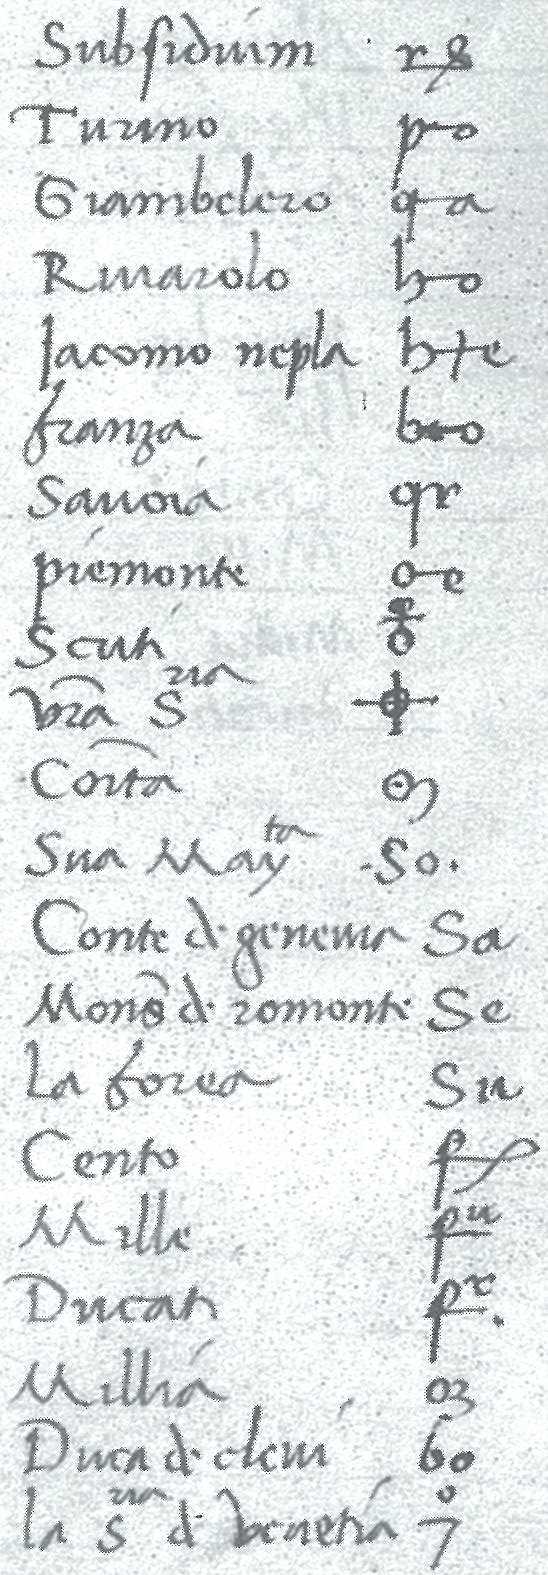 Subsidium
Turino po
Giambelero qa
Rivarolo ho
Jacomo nepla h+e
franza bo
Savoia qr
piemonte o-e
Scuti
Vra S ria
Conta
Sua May ta .So.
Conte de geneura Sa
Mons de romonte Se
La forea Su
Cento
Mille pu
Ducati pr.
Millia oz
Duca de clevi bo
la S ria de Venetia 7